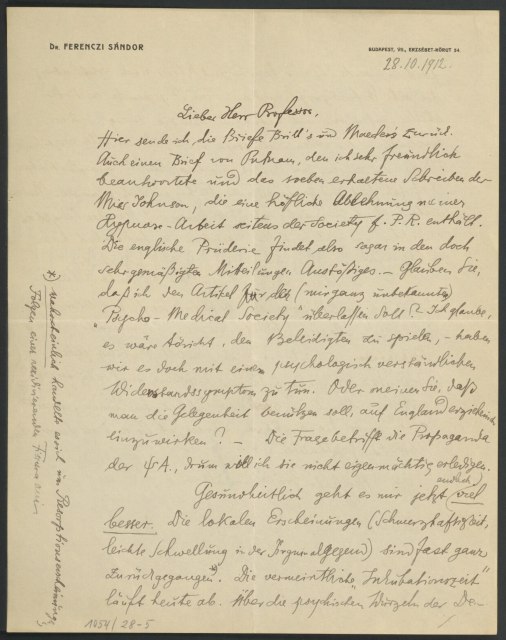 Dr. FERENCZI SÁNDOR
BUDAPEST, VII., ERZSÉBET-KÖRUT 54.
28.10.1912.
Lieber Herr Professor,
Hier sende ich die Briefe Brill's u Maeders zurück.
Auch einen Brief von Putnam, den ich sehr freundlich
beantwortete und das soeben erhaltene Schreiben der
Miss Johnson, die eine höfliche Ablehnung meiner
Hypnose-Arbeit seitens der Society f. P. R. enthält.
Die englische Prüderie findet also sogar in den doch
sehr gemäßigten Mitteilungen Anstößiges. – Glauben Sie,
daß ich den Artikel für der (mir ganz unbekannten)
"Psycho-Medical Society" überlassen soll? Ich glaube,
es wäre töricht, den Beleidigten zu spielen, – haben
wir es doch mit einem psychologisch verständlichen
Widerstandssymptom zu tun. Oder meinen Sie, daß
man die Gelegenheit benützen soll, auf England erziehend
einzuwirken? – Die Frage betrifft die Propaganda
der ΨA., drum will ich sie nicht eigenmächtig erledigen.
Gesundheitlich geht es mir jetzt endlich viel
besser. Die lokalen Erscheinungen (Schmerzhaftigkeit,
leichte Schwellung in der gegend) sind fast ganz
zurückgegangen x). Die vermeintliche "Inkubationszeit"
läuft heute ab. Über die psychischen Wurzeln der De-
x) wahrscheinlich handelt es sich um
Folgen einer
1054/28-5